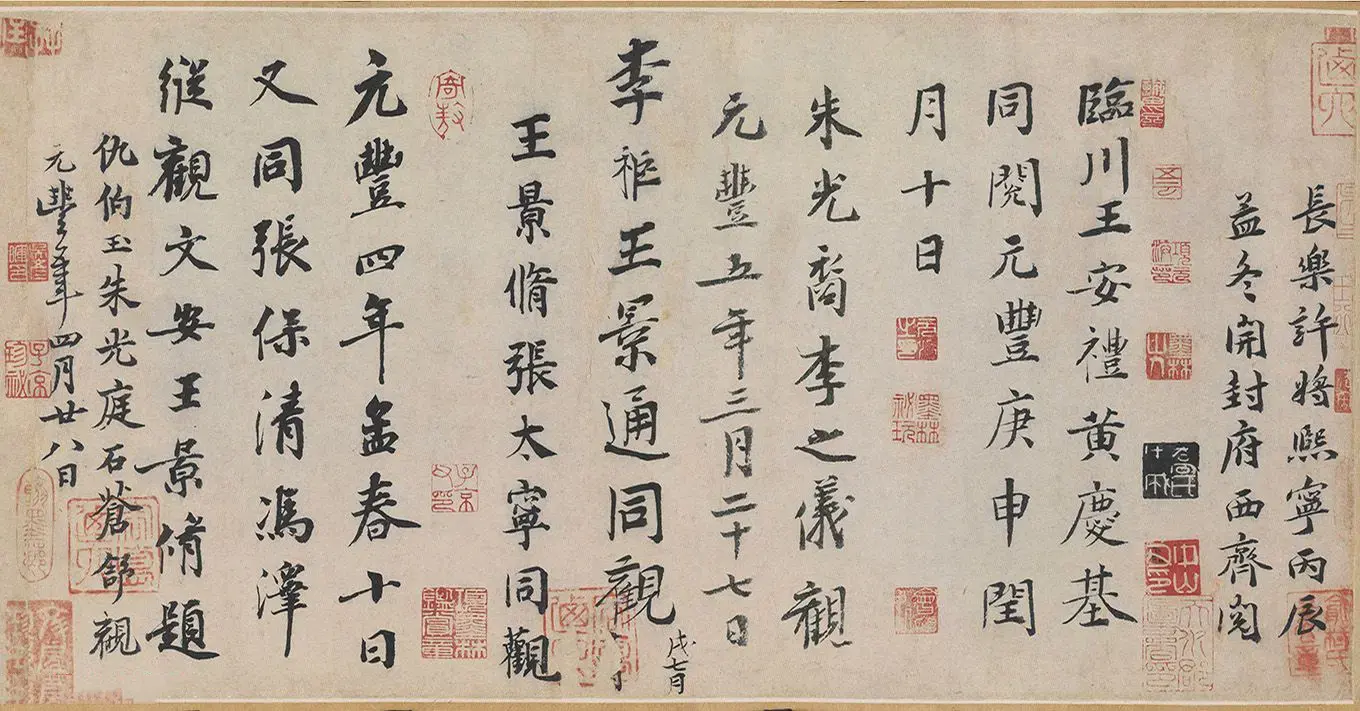 長樂許將熙寧丙辰
益冬開封府西齊閱
臨川王安禮黃慶基
同閱元豐庚申閏
月十日
朱光裔李之儀觀
元豐五年三月二十七日
李祉王景通同觀
戊七月
王景脩張太寧同觀
元豐四年孟春十日
又同張保清馮澤
縱觀文安王景脩題
仇伯玉朱光庭石蒼舒觀
元豐年四月廿八日